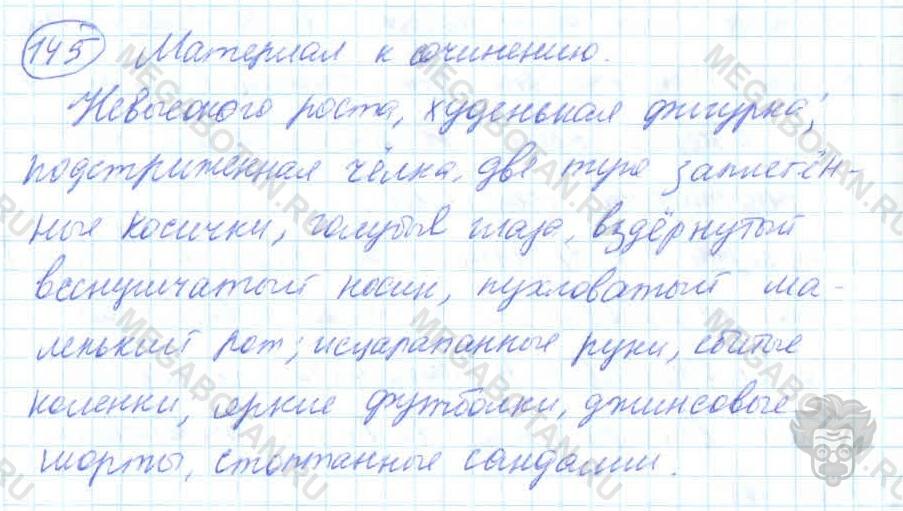 145 Материал к сочинению.
Невысокого роста, худенькая фигурка,
подстриженная чёлка, две туго заплетён-
ные косички, голубые глаза, вздёрнутый
веснушчатый носик, пухловатый ма-
ленький рот; исцарапанные руки, сбитые
коленки, яркие футболки, джинсовые
шорты, стоптанные сандалии.
MEGABOTAN.RU